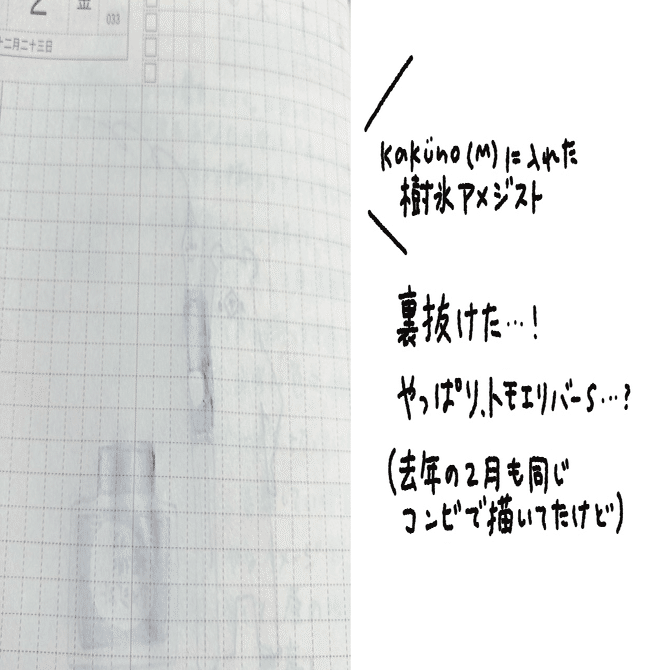 2
金
033
十二月二十三日
kaküno(M)に入れた
樹氷アメジスト
裏抜けた…!
やっぱり、トモエリバーS…?
(去年の2月も同じ
コンビで描いてたけど)